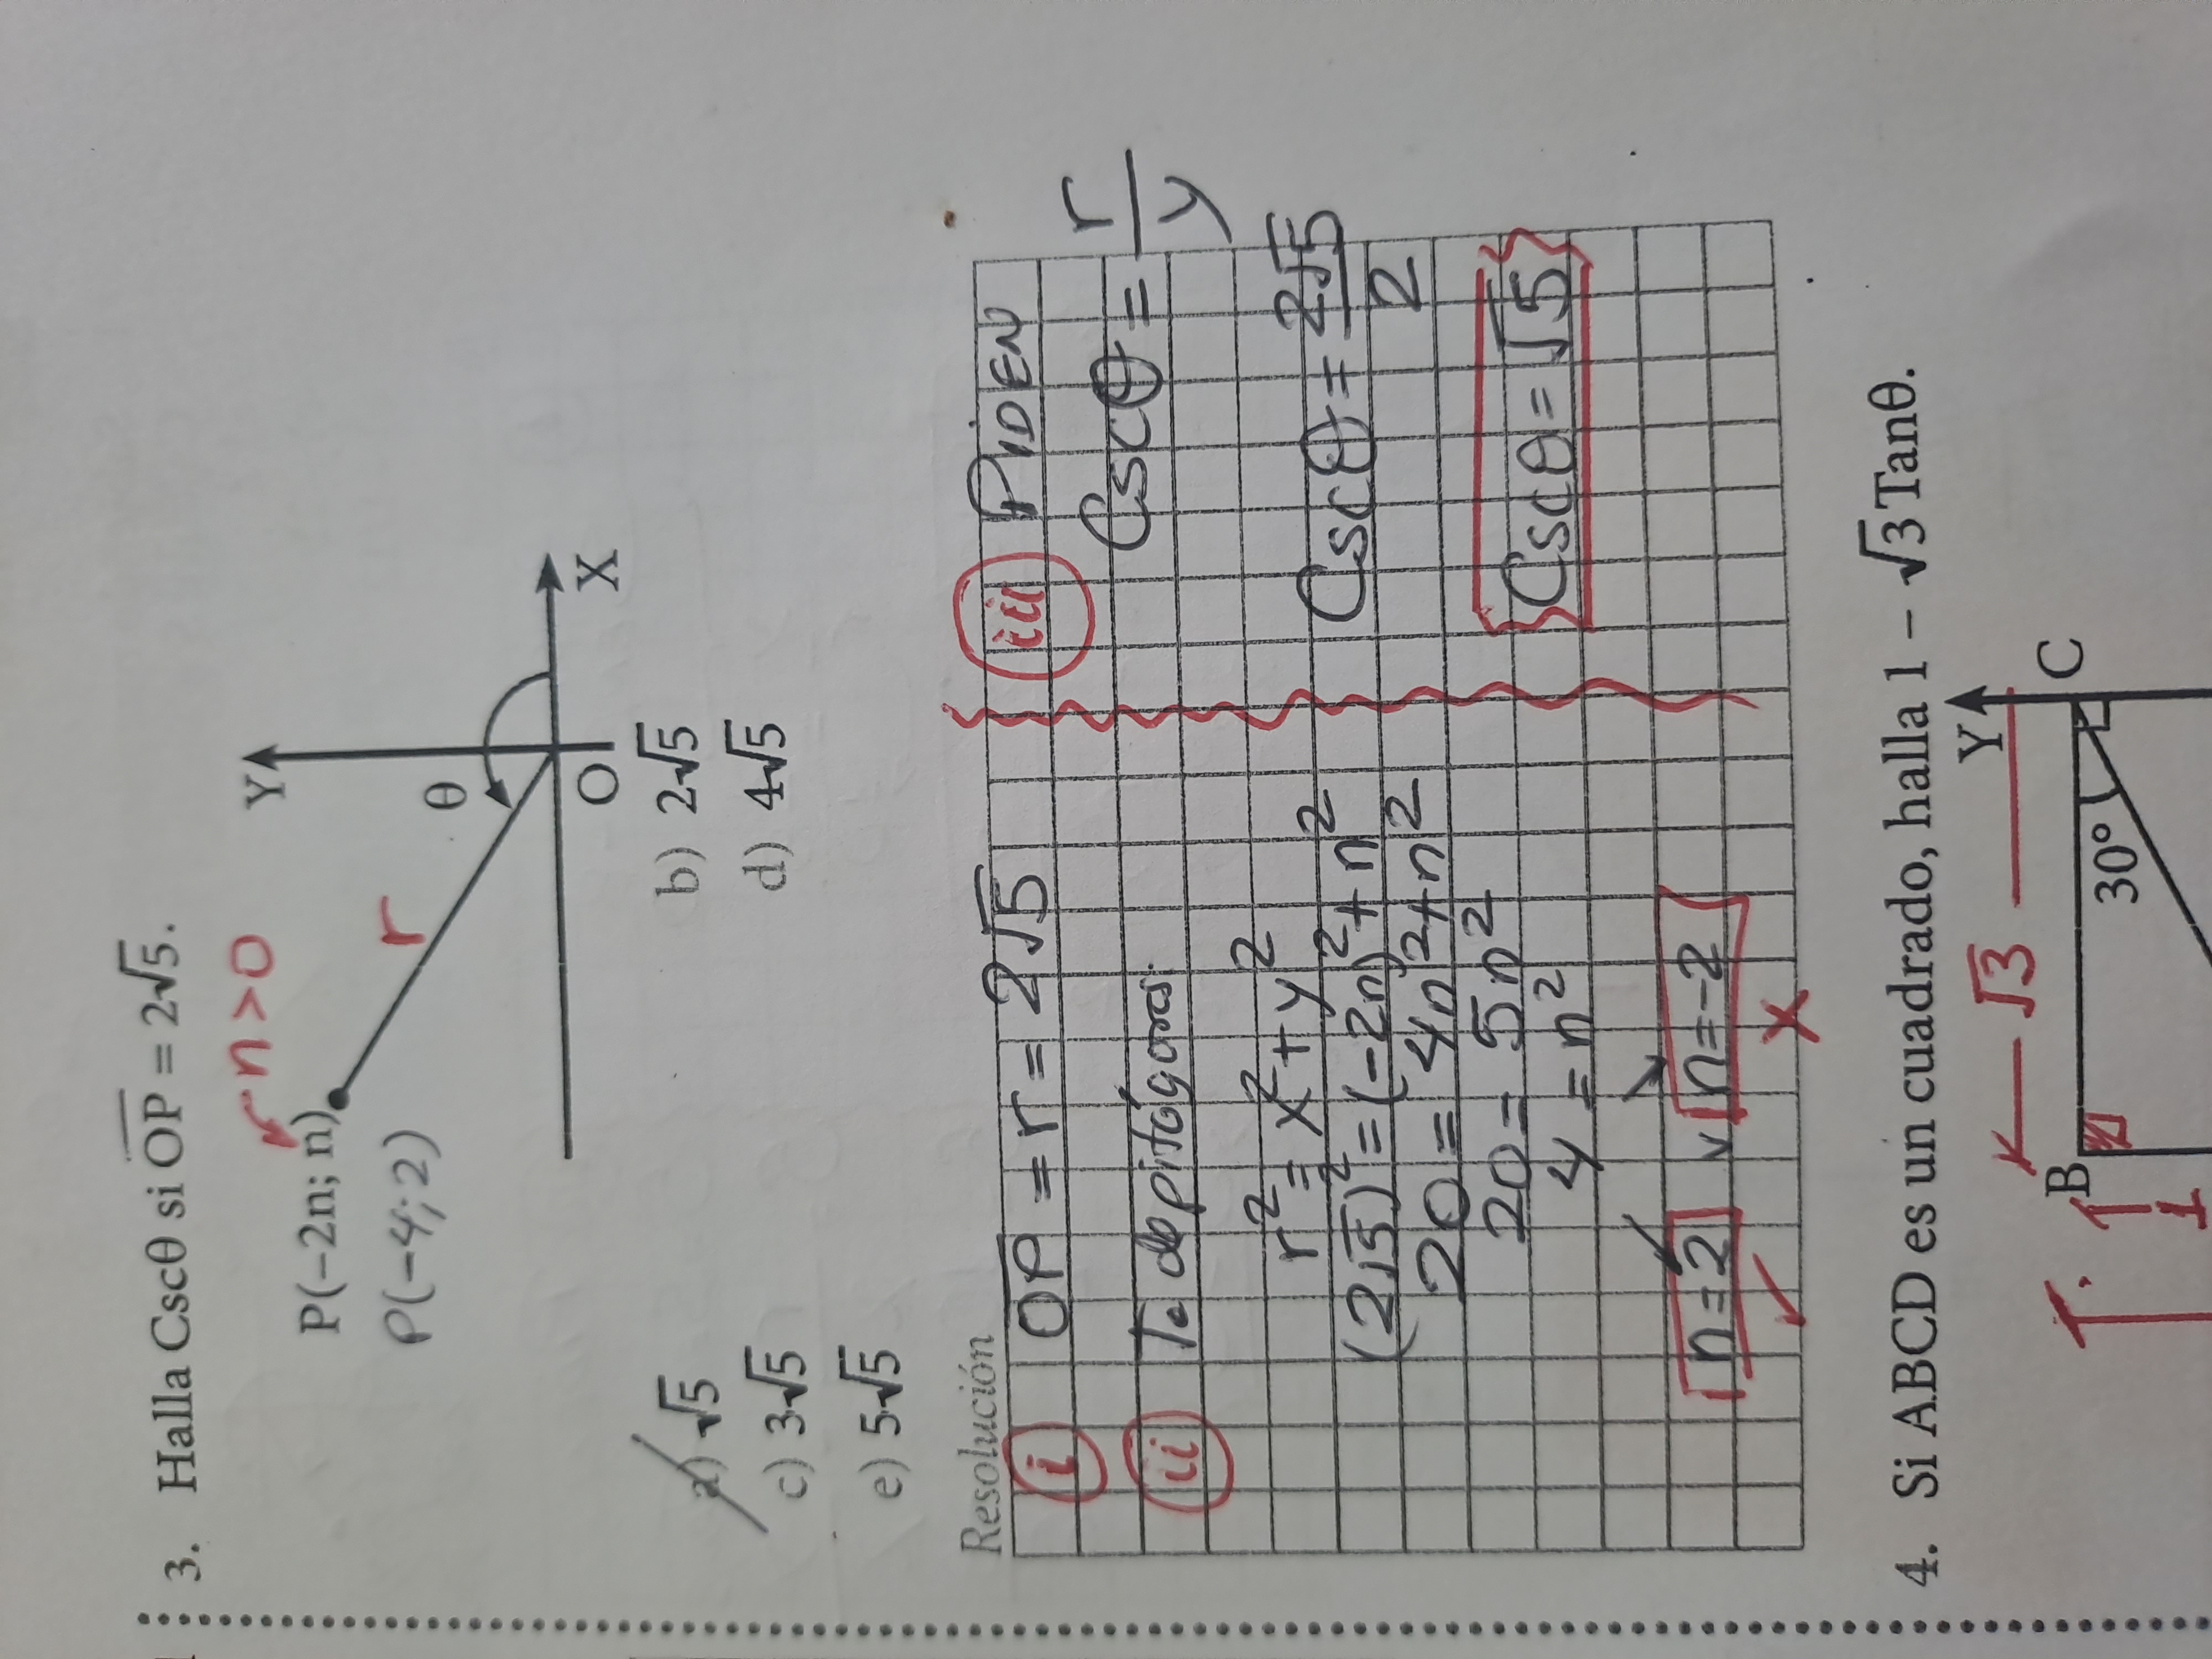 3. Halla Cscθ si OP = 2√5.
n>0
Y
P(–2n; n)
P(-4;2)
r
θ
O
X
a) √5
b) 2√5
c) 3√5
d) 4√5
e) 5√5
Resolución
i OP = r = 2√5
ii Te de pitágoras:
r² = x² + y²
(2√5)² = (-2n)² + n²
20 = 4n² + n²
20 = 5n²
4 = n²
n = 2 v n = -2
✓ X
iii PIDEN
Cscθ = r/y
Cscθ = 2√5/2
Cscθ = √5
4. Si ABCD es un cuadrado, halla 1 – √3 Tanθ.
Y
√3
B
C
30°
1